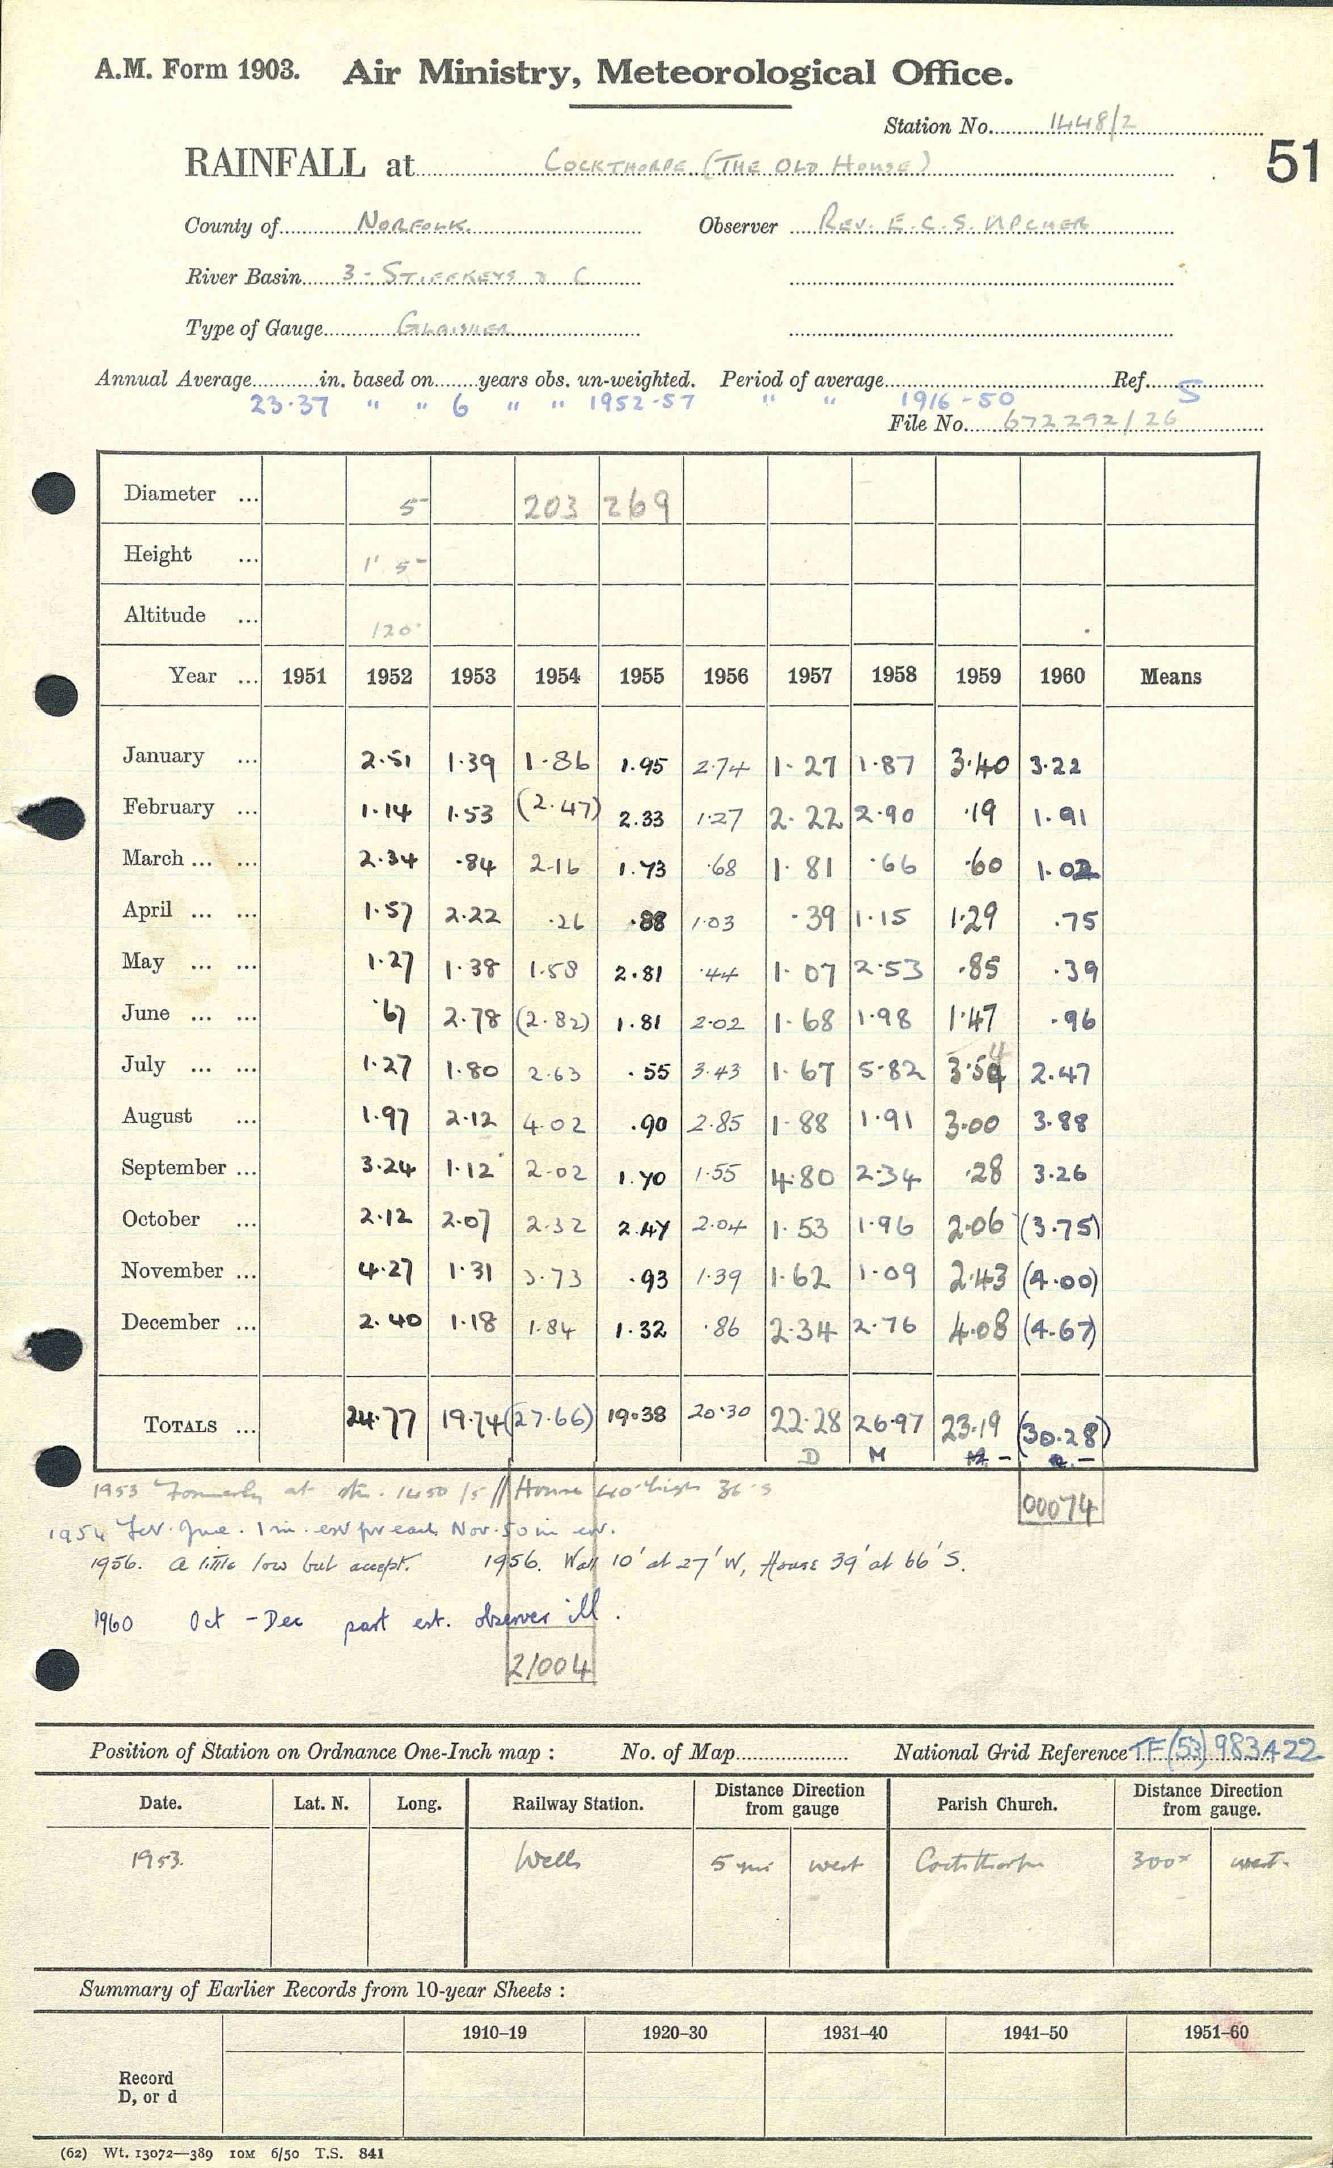 A.M. Form 1903. Air Ministry, Meteorological Office.
Station No. 1448/2
RAINFALL at COCKTHORPE (THE OLD HOUSE)
51
County of NORFOLK. Observer REV. E.C.S. UPCHER
River Basin 3 - STIFFKEYS & C
Type of Gauge GLAISHER
Annual Average in. based on years obs. un-weighted. Period of average Ref. S
23.37 " " 6 " " 1952-57 " " 1916-50
File No. 672292/26
Diameter ... 5 203 269
Height ... 1' 5
Altitude ... 120
Year ... 1951 1952 1953 1954 1955 1956 1957 1958 1959 1960 Means
January ... 2.51 1.39 1.86 1.95 2.74 1.27 1.87 3.40 3.22
February ... 1.14 1.53 (2.47) 2.33 1.27 2.22 2.90 .19 1.91
March ... ... 2.34 .84 2.16 1.73 .68 1.81 .66 .60 1.02
April ... ... 1.57 2.22 .26 .88 1.03 .39 1.15 1.29 .75
May ... ... 1.27 1.38 1.58 2.81 .44 1.07 2.53 .85 .39
June ... ... .67 2.78 (2.82) 1.81 2.02 1.68 1.98 1.47 .96
July ... ... 1.27 1.80 2.63 .55 3.43 1.67 5.82 3.54 2.47
August ... 1.97 2.12 4.02 .90 2.85 1.88 1.91 3.00 3.88
September ... 3.24 1.12 2.02 1.70 1.55 4.80 2.34 .28 3.26
October ... 2.12 2.07 2.32 2.47 2.04 1.53 1.96 2.06 (3.75)
November ... 4.27 1.31 3.73 .93 1.39 1.62 1.09 2.43 (4.00)
December ... 2.40 1.18 1.84 1.32 .86 2.34 2.76 4.08 (4.67)
TOTALS ... 24.77 19.74 (27.66) 19.38 20.30 22.28 26.97 23.19 (30.28)
D M
1953 Formerly at stn. 1450/5 // House 40' high 36' S
00074
1954 Feb. June. 1 in. est for each, Nov. .50 in est.
1956. A little low but accept. 1956. Wall 10' at 27' W, House 39' at 66' S.
1960 Oct - Dec part est. observer ill.
21004
Position of Station on Ordnance One-Inch map : No. of Map National Grid Reference TF (53) 983422
Date. Lat. N. Long. Railway Station. Distance from gauge Direction Parish Church. Distance from gauge. Direction
1953. Wells 5 mi west Cockthorpe 300x west.
Summary of Earlier Records from 10-year Sheets :
1910–19 1920–30 1931–40 1941–50 1951–60
Record
D, or d
(62) Wt. 13072—389 10M 6/50 T.S. 841